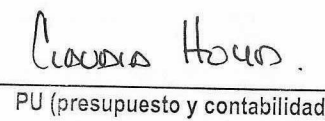 Claudia Hoyos.
PU (presupuesto y contabilidad